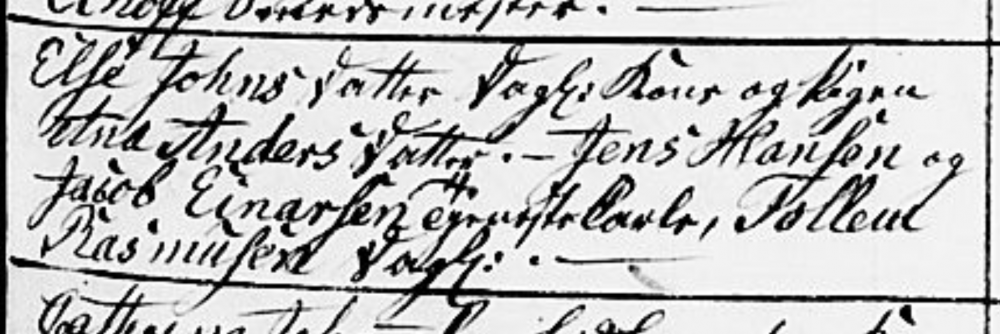 Else Johns Datter Dagl: Kone og Pigen
Ana Anders Datter. — Jens Hansen og
Jacob Einarsen Tjeneste Karle, Tollew
Rasmusen Dagl: . —